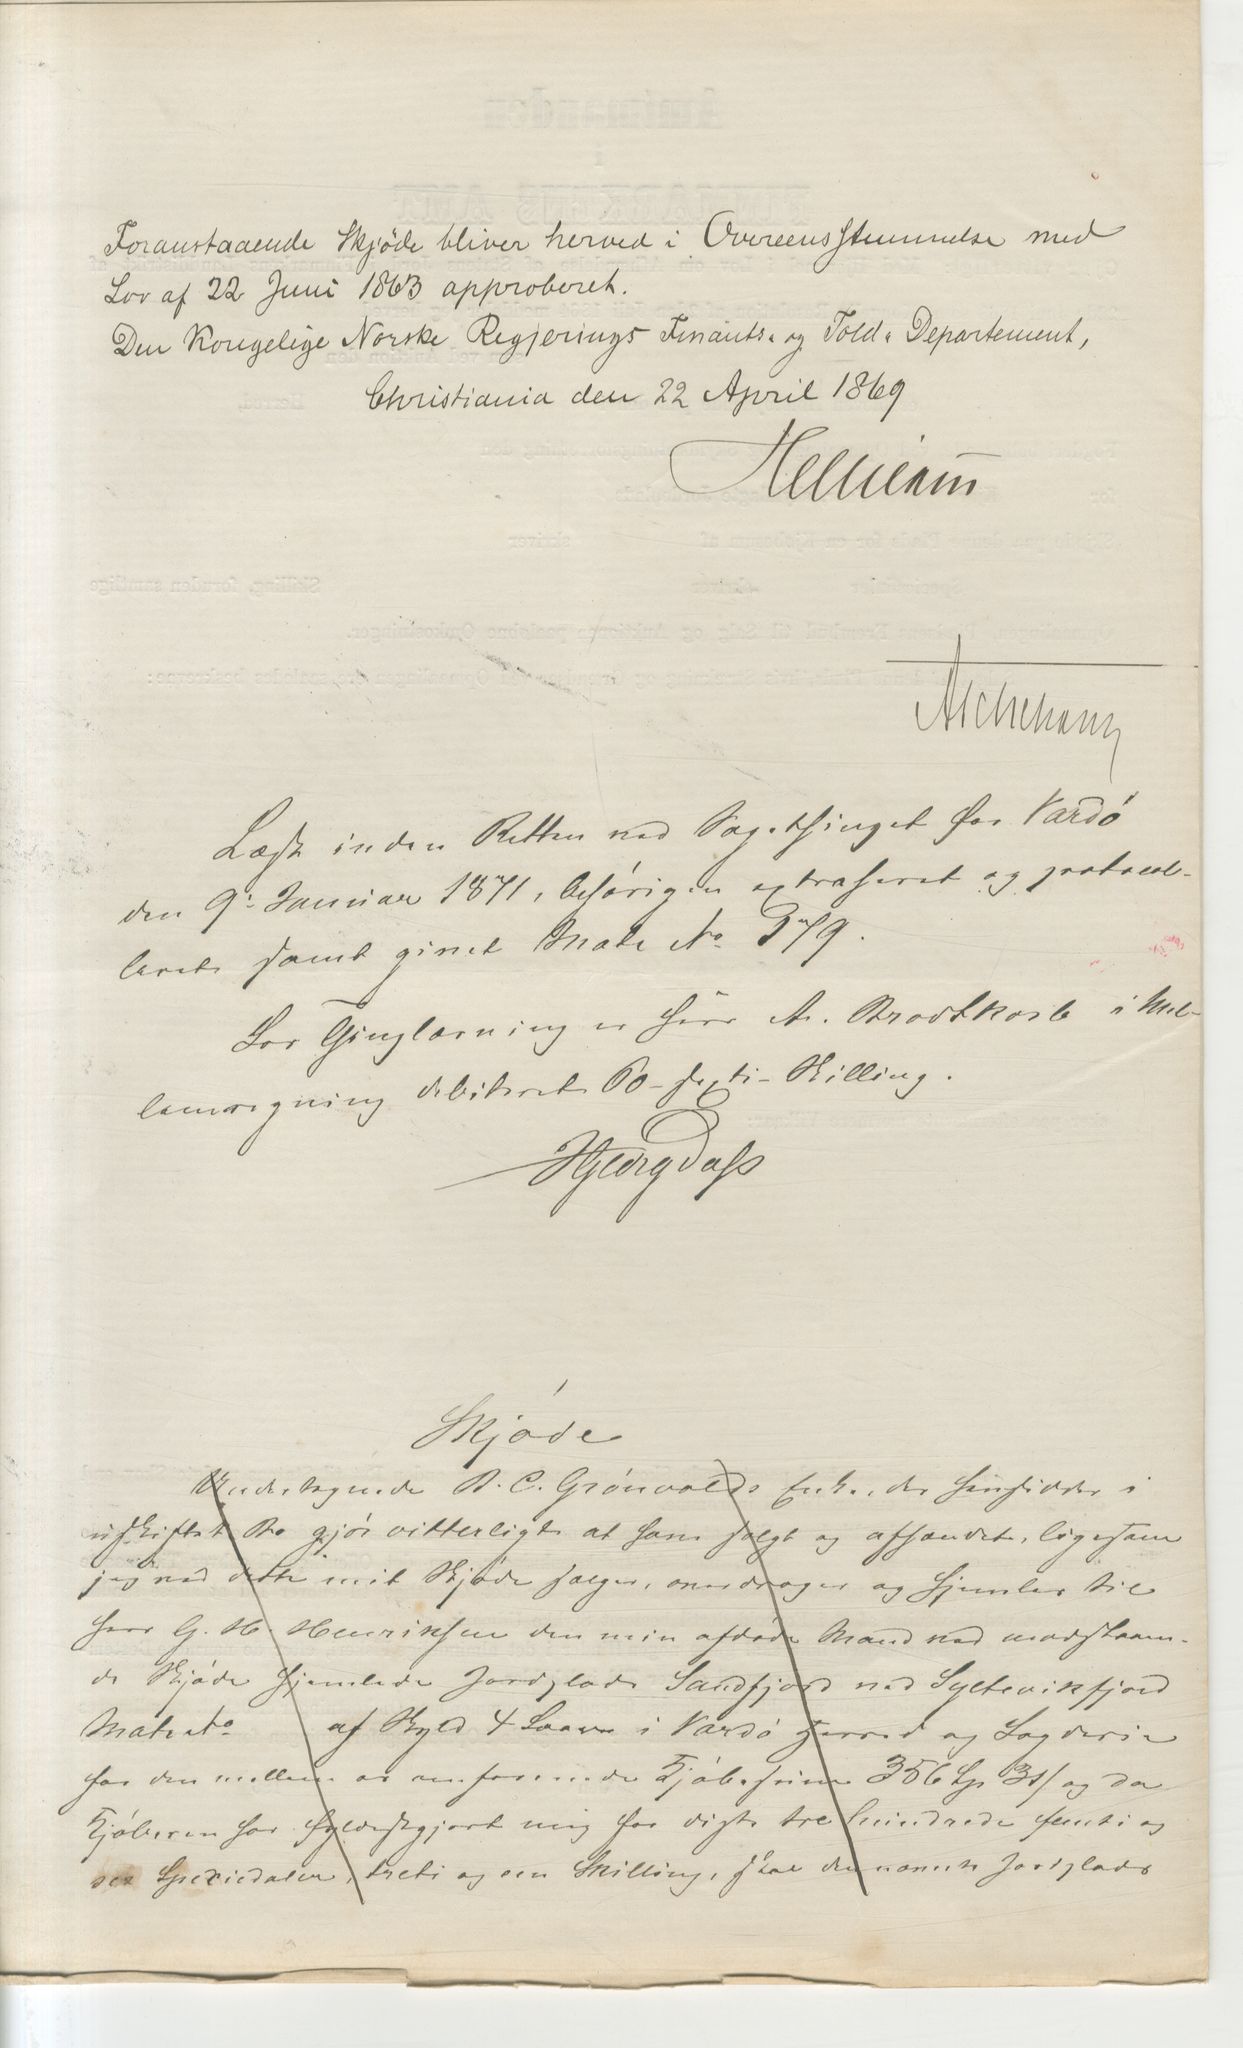 Foranstaaende Skjøde bliver herved i Overeensstemmelse med
Lov af 22 Juni 1863 approberet.
Den Kongelige Norske Regjerings Finants- og Told-Departement,
Christiania den 22 April 1869
Helliesen
Aschehoug
Læst inden Retten ved Sagethinget for Vardö
den 9de Januar 1871, behörigen extraheret og protocol-
leret samt givet Mate No 379.
For Thinglæsning er Herr A. Brodtkorb i Mel-
lemregning debiteret 60 - sexti - Skilling.
Skjöde
Undertegnede B. C. Grönvolds Enke, der hensidder i
uskiftet Bo gjör vitterligt at have solgt og afhændet, ligesom
jeg ved dette mit Skjöde sælger, overdrager og hjemler til
Herr G. H. Henriksen den min afdöde Mand ved modstaaen-
de Skjöde hjemlede Jordplads Sandfjord ved Syltevikfjord
Mate No af Skyld 4 i Vardö Herred og Fogderie
for den mellem os omforenede Kjöbesum 356 Sp 31 s/ og da
Kjöberen har fyldestgjort mig for disse tre hundrede femti og
sex Speciedaler, treti og een Skilling, skal den nævnte Jordplads